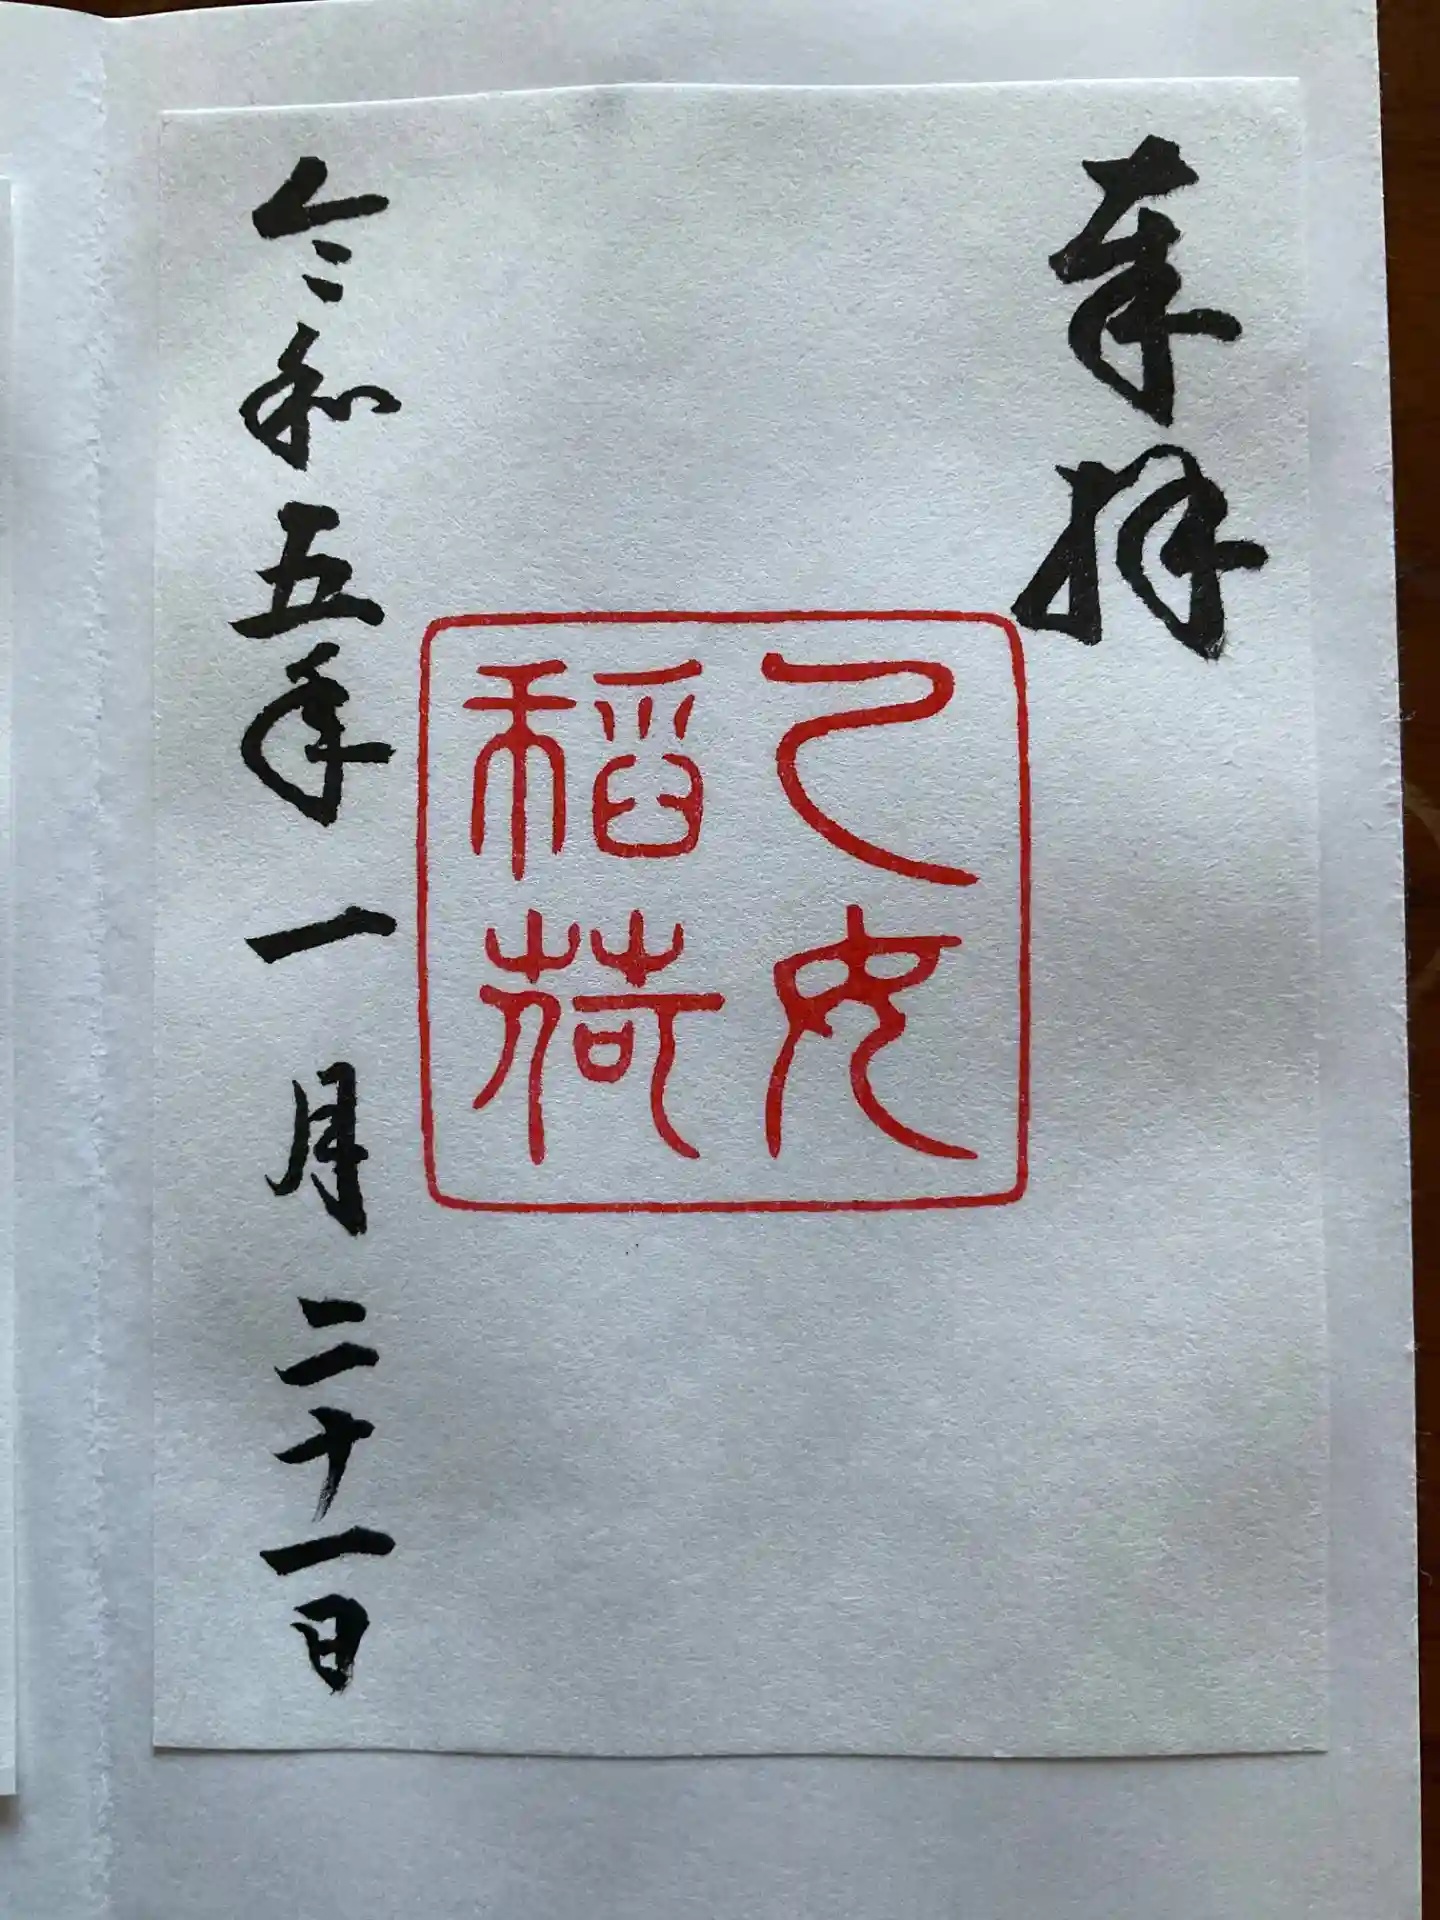 奉拝
乙女
稲荷
令和五年一月二十一日